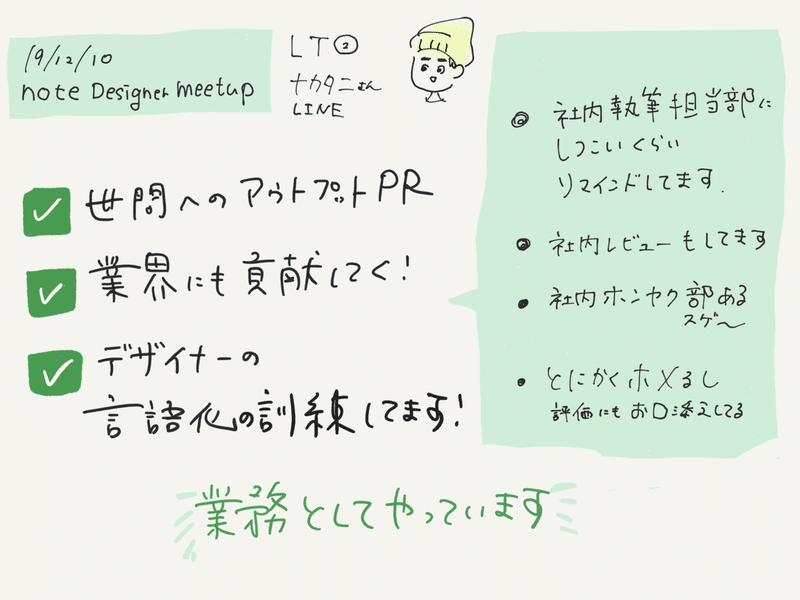 19/12/10
note Designer Meetup
LT②
ナカタニさん
LINE
世間へのアウトプットPR
業界にも貢献してく！
デザイナーの
言語化の訓練してます！
社内執筆担当部に
しつこいくらい
リマインドしてます.
社内レビューもしてます
社内ホンヤク部ある
スゲ〜
とにかくホメるし
評価にもお口添えしてる
業務としてやっています